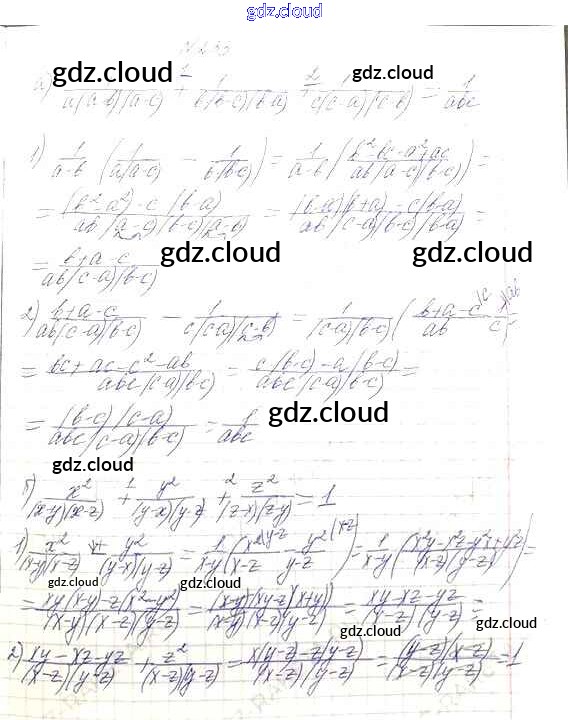 gdz.cloud
N 233
gdz.cloud gdz.cloud
а) 1/(a(a-b)(a-c)) + 1/(b(b-c)(b-a)) + 1/(c(c-a)(c-b)) = 1/(abc)
1) 1/(a-b) (1/(a(a-c)) - 1/(b(b-c))) = 1/(a-b) ((b²-bc-a²+ac)/(ab(a-c)(b-c))) =
= ((b²-a²)-c(b-a))/(ab(a-c)(b-c)(a-b)) = ((b-a)(b+a)-c(b-a))/(ab(c-a)(b-c)(b-a)) =
gdz.cloud gdz.cloud
= (b+a-c)/(ab(c-a)(b-c))
2) (b+a-c)/(ab(c-a)(b-c)) - 1/(c(c-a)(c-b)) = 1/((c-a)(b-c)) ((b+a-c)/ab
= (bc+ac-c²-ab)/(abc(c-a)(b-c)) = (c(b-c)-a(b-c))/(abc(c-a)(b-c)) =
= ((b-c)(c-a))/(abc(c-a)(b-c)) = 1/(abc)
gdz.cloud
gdz.cloud
б) x²/((x-y)(x-z)) + y²/((y-x)(y-z)) + z²/((z-x)(z-y)) = 1
1) x²/((x-y)(x-z)) + y²/((y-x)(y-z)) = 1/(x-y) (x²/(x-z) - y²/(y-z)) = 1/(x-y) ((x²y-x²z-y²x+y²z)/((x-z)(y-z))) =
gdz.cloud gdz.cloud
= (xy(x-y)-z(x²-y²))/((x-y)(x-z)(y-z)) = ((x-y)(xy-z)(x+y))/((x-y)(x-z)(y-z)) = (xy-xz-yz)/((x-z)(y-z)) =
gdz.cloud
gdz.cloud
2) (xy-xz-yz)/((x-z)(y-z)) + z²/((x-z)(y-z)) = (x(y-z)-z(y-z))/((x-z)(y-z)) = ((y-z)(x-z))/((x-z)(y-z)) = 1
gdz.cloud